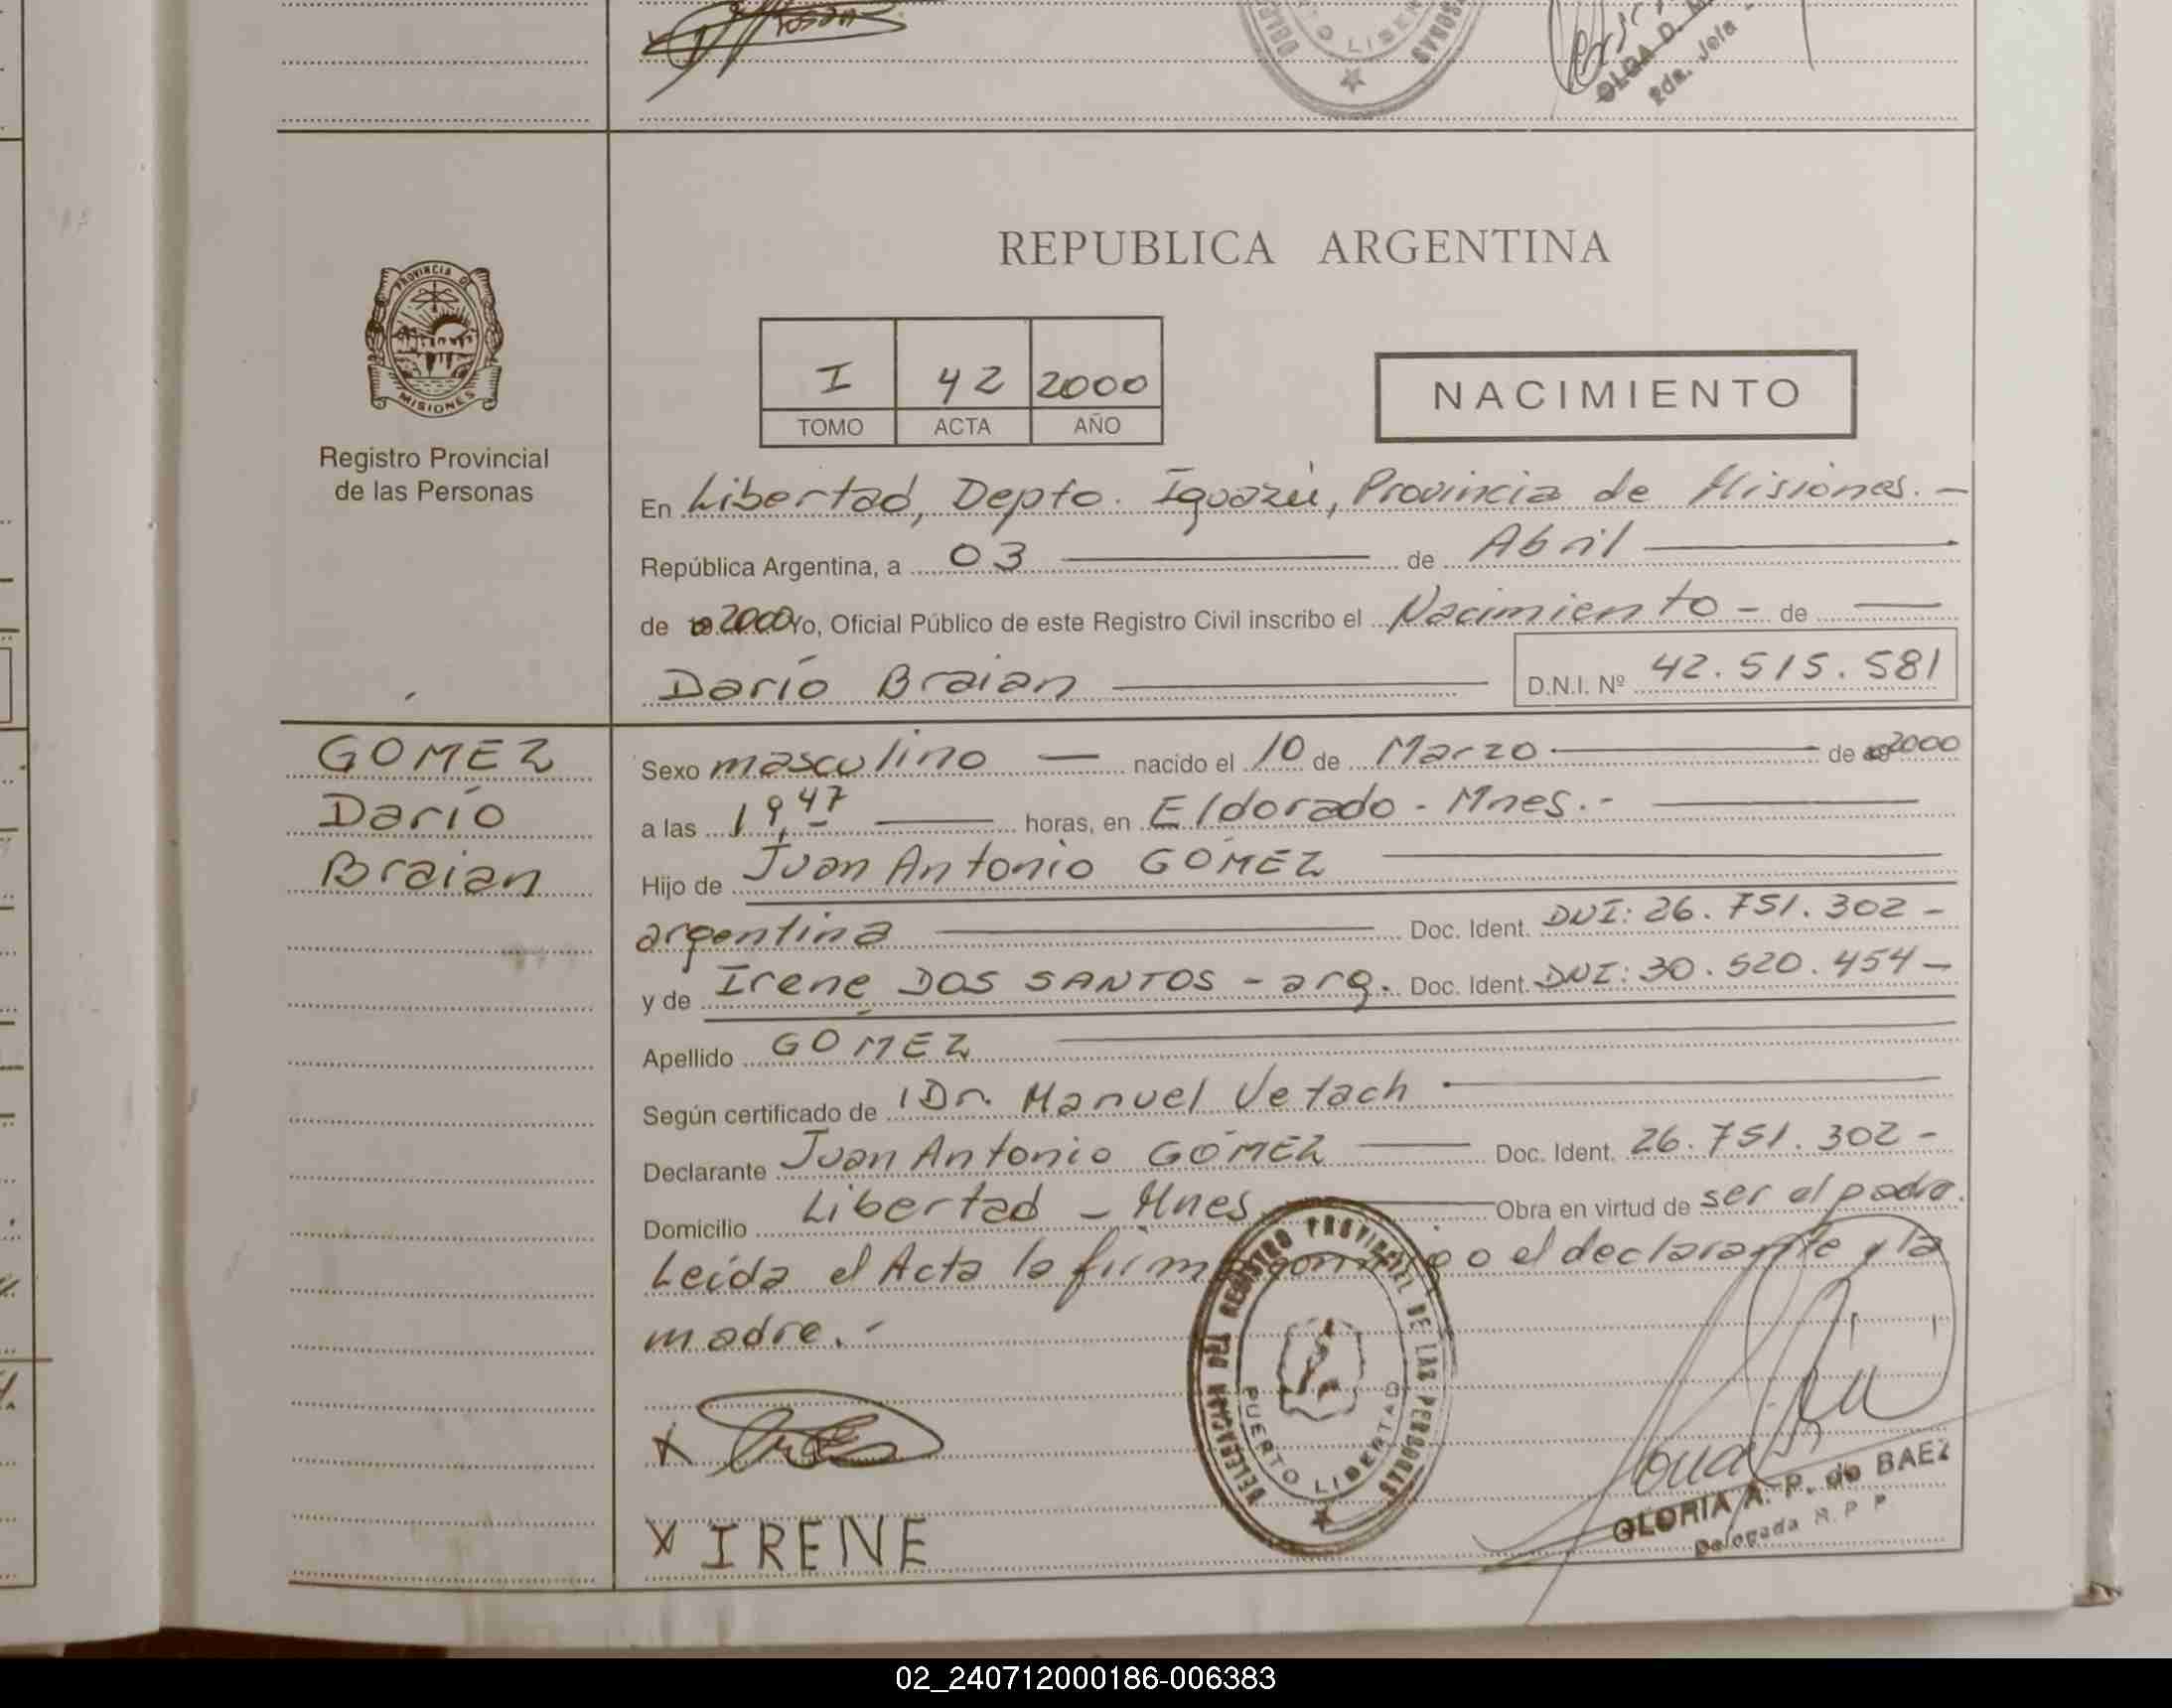 OLGA D.
2da. Jefa
REPUBLICA ARGENTINA
PROVINCIA D
MISIONES
I 42 2000
TOMO ACTA AÑO
NACIMIENTO
Registro Provincial
de las Personas
En Libertad, Depto. Iguazú, Provincia de Misiones.-
República Argentina, a 03 de Abril
de 2000 Yo, Oficial Público de este Registro Civil inscribo el Nacimiento - de
Darío Braian D.N.I. Nº 42.515.581
GOMEZ
Darío
Braian
Sexo masculino nacido el 10 de Marzo de 2000
a las 19,47 horas, en Eldorado - Mnes.-
Hijo de Juan Antonio GÓMEZ
argentina Doc. Ident. DNI: 26.751.302-
y de Irene DOS SANTOS - arg. Doc. Ident. DNI: 30.520.454-
Apellido GÓMEZ
Según certificado de Dr. Manuel Vetach
Declarante Juan Antonio GÓMEZ Doc. Ident. 26.751.302-
Domicilio Libertad - Mnes Obra en virtud de ser el padre.
Leída el Acta la firma conmigo el declarante y la
madre.-
DELEGACION DEL REGISTRO PROVINCIAL DE LAS PERSONAS
PUERTO LIBERTAD
X
X IRENE
GLORIA A. P. de BAEZ
Delegada R. P. P.
02_240712000186-006383